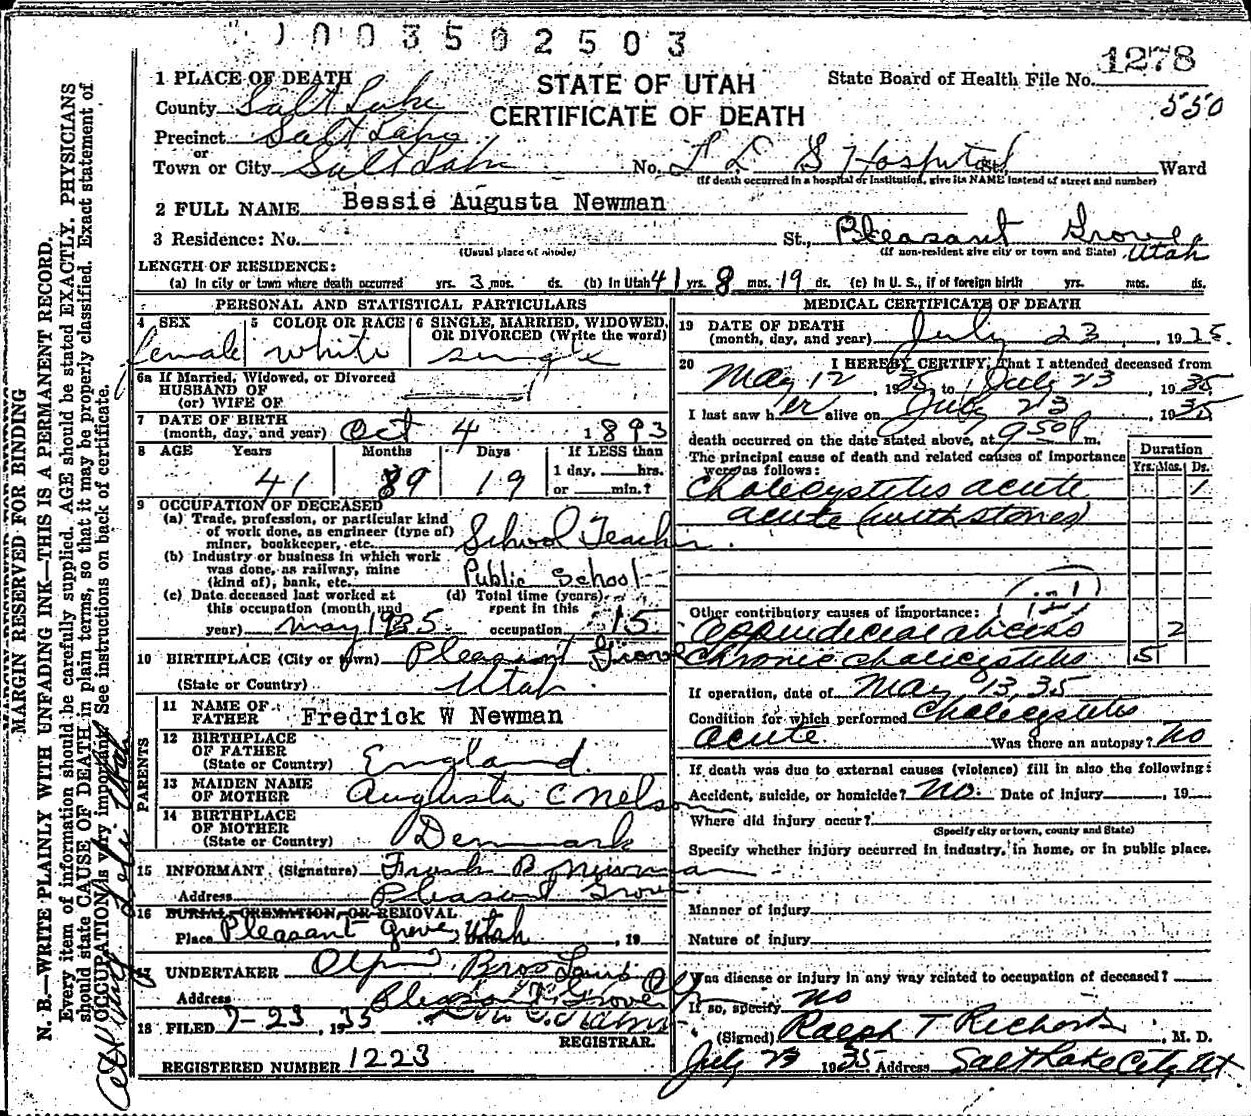 1003502503
1278
550
STATE OF UTAH
CERTIFICATE OF DEATH
State Board of Health File No.
1 PLACE OF DEATH
County Salt Lake
Precinct Salt Lake
or
Town or City Salt Lake No. L D S Hospital St., Ward
(If death occurred in a hospital or institution, give its NAME instead of street and number)
2 FULL NAME Bessie Augusta Newman
3 Residence: No. St., Pleasant Grove Utah
(Usual place of abode) (If non-resident give city or town and State)
LENGTH OF RESIDENCE:
(a) In city or town where death occurred yrs. 3 mos. ds. (b) In Utah 41 yrs. 8 mos. 19 ds. (c) In U. S., if of foreign birth yrs. mos. ds.
PERSONAL AND STATISTICAL PARTICULARS
4 SEX 5 COLOR OR RACE 6 SINGLE, MARRIED, WIDOWED, OR DIVORCED (Write the word)
female white single
6a If Married, Widowed, or Divorced
HUSBAND OF
(or) WIFE OF
7 DATE OF BIRTH
(month, day, and year) Oct 4 1893
8 AGE Years Months Days If LESS than
1 day, hrs.
or min.?
41 9 19
9 OCCUPATION OF DECEASED
(a) Trade, profession, or particular kind
of work done, as engineer (type of)
miner, bookkeeper, etc. School Teacher
(b) Industry or business in which work
was done, as railway, mine
(kind of), bank, etc. Public School
(c) Date deceased last worked at
this occupation (month and
year) May 1935
(d) Total time (years)
spent in this
occupation 15
10 BIRTHPLACE (City or town) Pleasant Grove
(State or Country) Utah
PARENTS
11 NAME OF
FATHER Fredrick W Newman
12 BIRTHPLACE
OF FATHER
(State or Country) England
13 MAIDEN NAME
OF MOTHER Augusta C Nelson
14 BIRTHPLACE
OF MOTHER
(State or Country) Denmark
15 INFORMANT (Signature) Frank B Newman
Address Pleasant Grove
16 BURIAL, CREMATION, OR REMOVAL
Place Pleasant Grove, Utah , 19
17 UNDERTAKER Olpin Bros
Address Pleasant Grove
18 FILED 7-23, 1935
REGISTRAR.
REGISTERED NUMBER 1223
MEDICAL CERTIFICATE OF DEATH
19 DATE OF DEATH
(month, day, and year) July 23, 1935.
20 I HEREBY CERTIFY, That I attended deceased from
May 12, 1935 to July 23, 1935
I last saw her alive on July 23 1935
death occurred on the date stated above, at 9 50 P m.
The principal cause of death and related causes of importance
were as follows:
Duration
Yrs. Mos. Ds.
Cholecystitis acute 1
acute (with stones)
Other contributory causes of importance:
Appendiceal abcess 2
Chronic cholecystitis 5
If operation, date of May 13, 35
Condition for which performed Cholecystitis
Acute. Was there an autopsy? No
If death was due to external causes (violence) fill in also the following:
Accident, suicide, or homicide? No. Date of injury , 19
Where did injury occur?
(Specify city or town, county and State)
Specify whether injury occurred in industry, in home, or in public place.
Manner of injury
Nature of injury
Was disease or injury in any way related to occupation of deceased?
If so, specify no
(Signed) Ralph T Richards, M. D.
July 23 1935 Address Salt Lake City, Ut
MARGIN RESERVED FOR BINDING
N. B.—WRITE PLAINLY WITH UNFADING INK—THIS IS A PERMANENT RECORD.
Every item of information should be carefully supplied. AGE should be stated EXACTLY. PHYSICIANS
should state CAUSE OF DEATH in plain terms, so that it may be properly classified. Exact statement of
OCCUPATION is very important. See instructions on back of certificate.